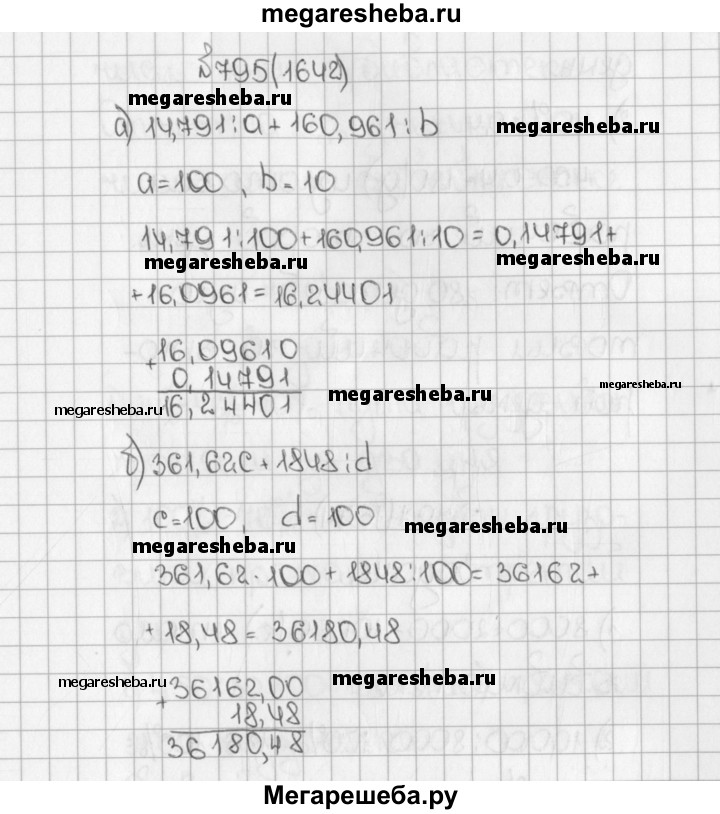 megaresheba.ru
№795(1642)
megaresheba.ru
а) 14,791:a + 160,961:b
megaresheba.ru
a=100, b=10
14,791:100+160,961:10 = 0,14791+
megaresheba.ru megaresheba.ru
+16,0961=16,24401
16,09610
+
0,14791
megaresheba.ru
megaresheba.ru
megaresheba.ru
16,24401
б) 361,62c + 1848:d
c=100, d=100
megaresheba.ru
megaresheba.ru
361,62·100+1848:100= 36162+
+18,48= 36180,48
megaresheba.ru
megaresheba.ru
36162,00
+
18,48
36180,48
Мегарешеба.ру